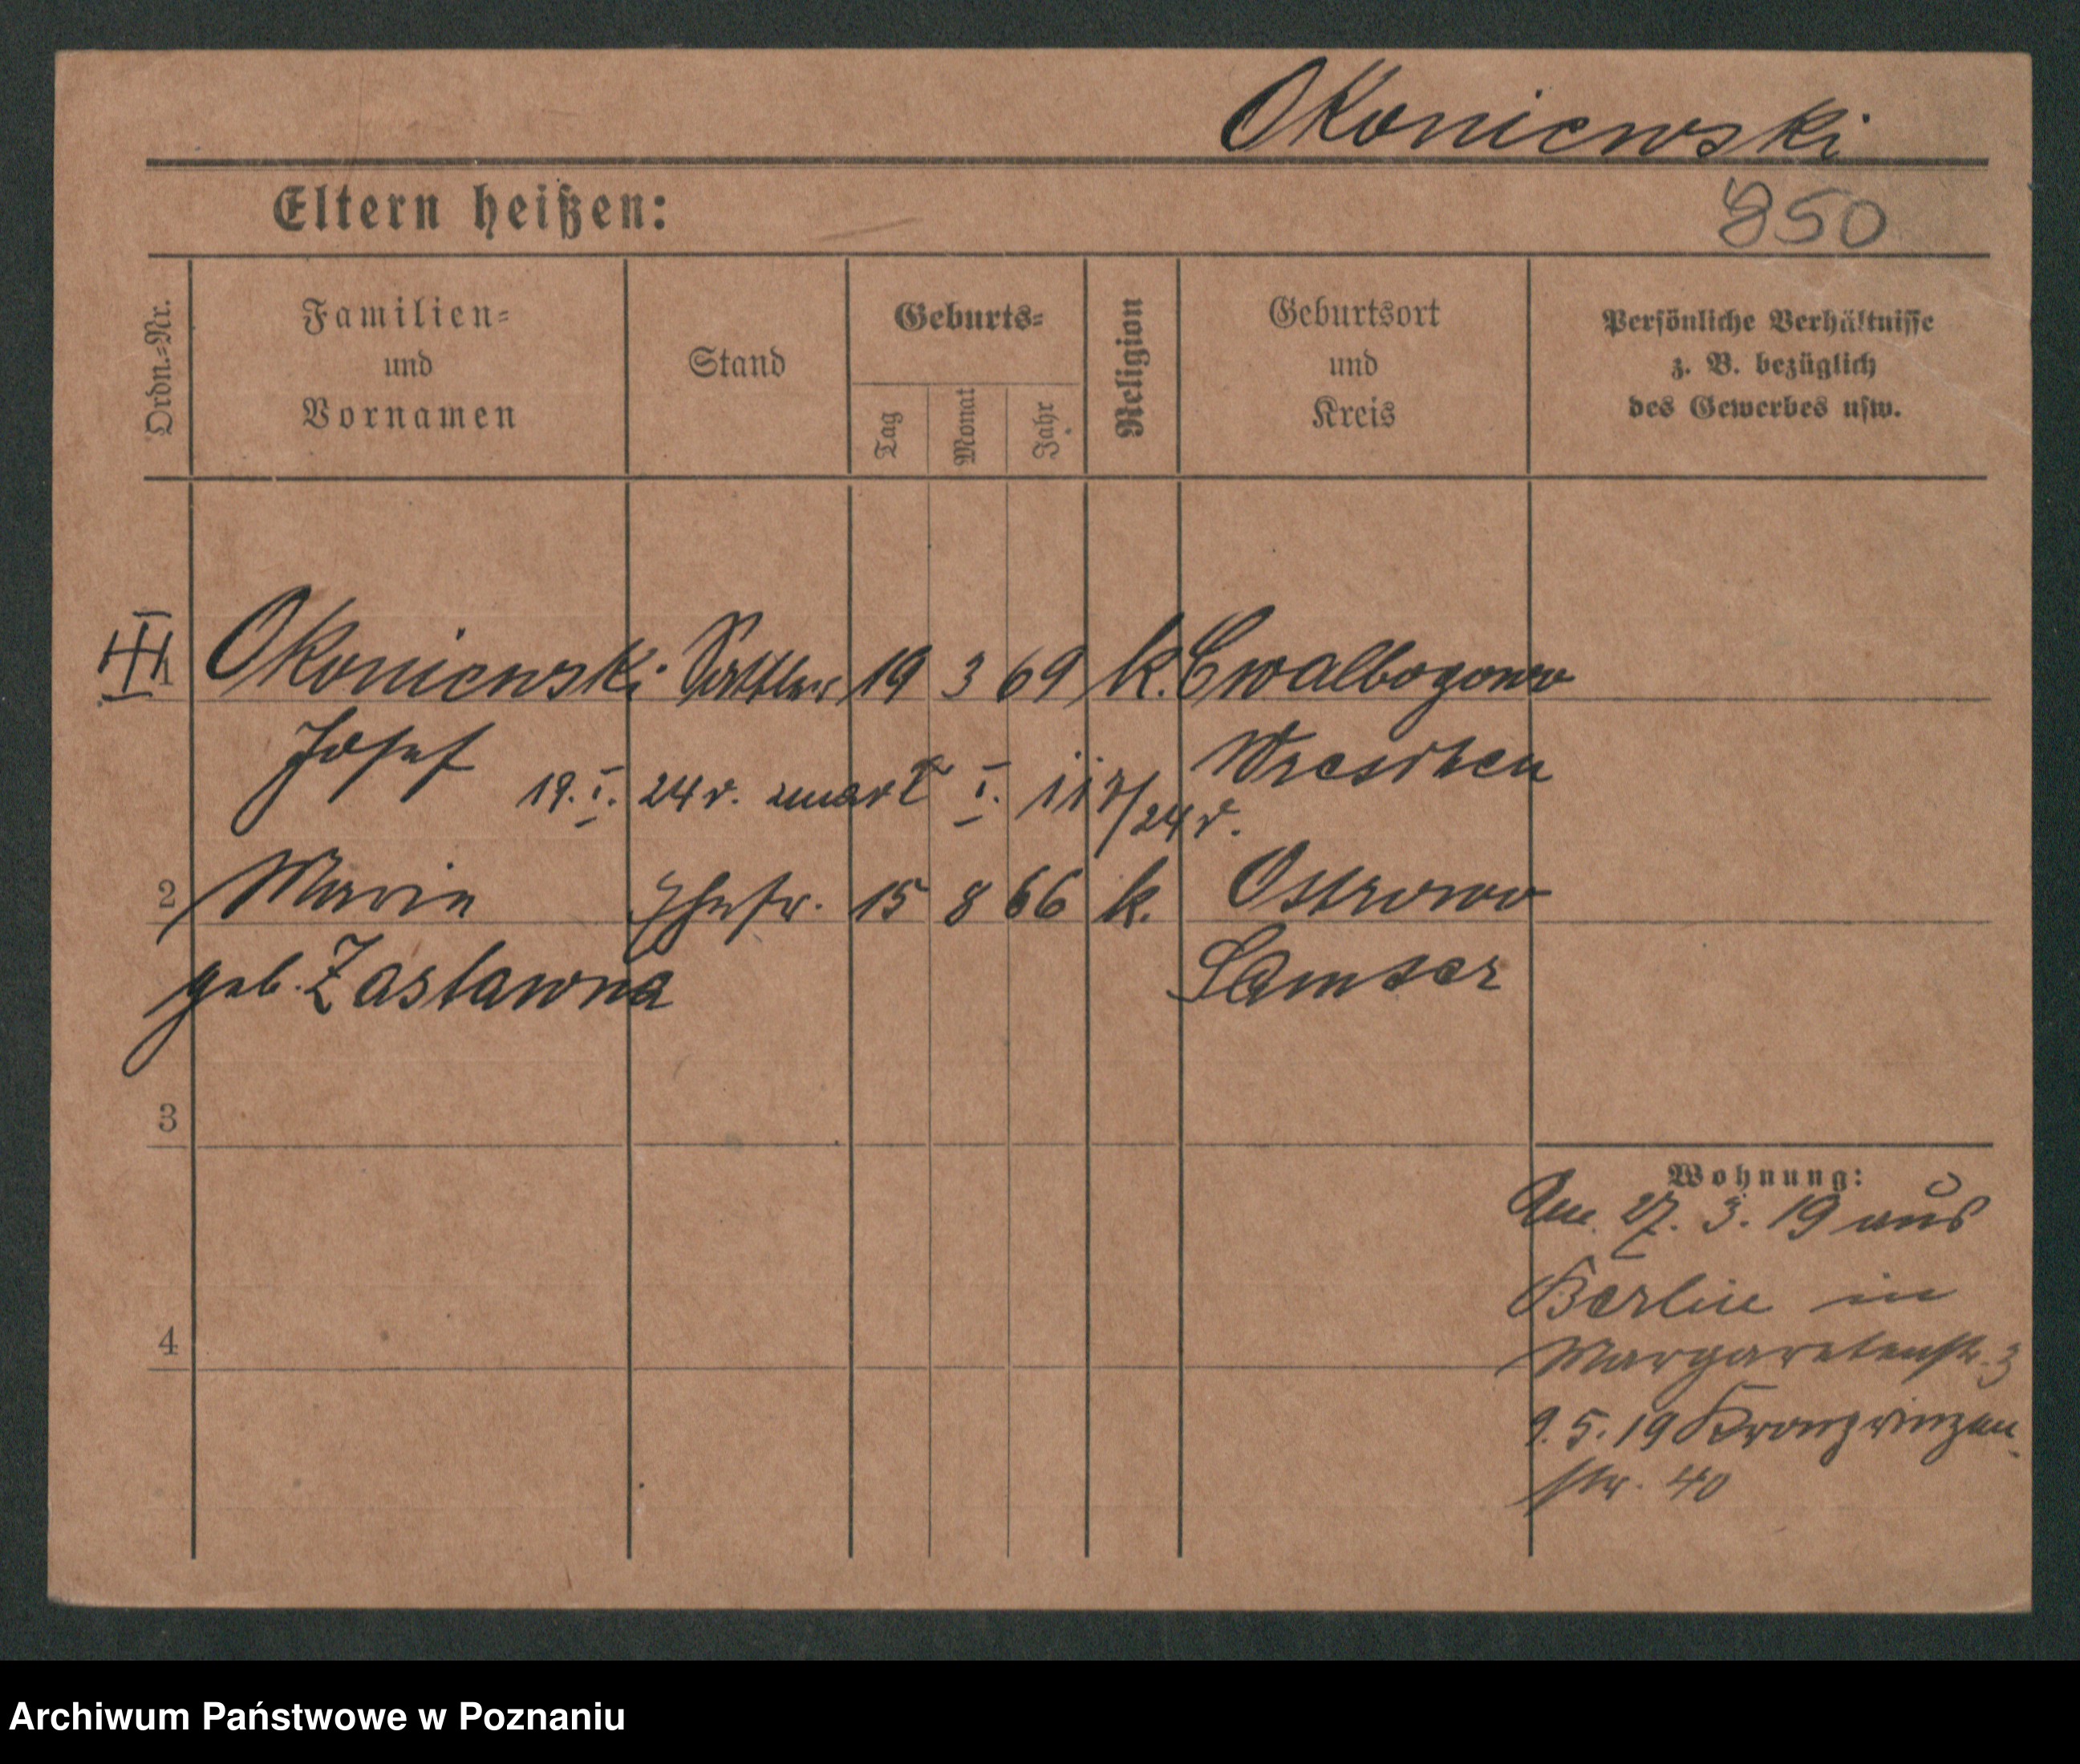 Okoniewski
Eltern heißen:
850
Ordn.-Nr.
Familien-
und
Vornamen
Stand
Geburts-
Tag
Monat
Jahr
Religion
Geburtsort
und
Kreis
Persönliche Verhältnisse
z. B. bezüglich
des Gewerbes usw.
Okoniewski Sattler 19 3 69 k. Cwalbogowo
Josef Wreschen
19. I. 24 r. zmarł I. 117/24 r.
2 Marie Ehefr. 15 8 66 k. Ostrowo
geb. Zastawna Samter
3
4
Wohnung:
Am 27. 3. 19 aus
Berlin in
Margaretenstr. 3
9. 5. 19 Kronprinzen
str. 40
Archiwum Państwowe w Poznaniu